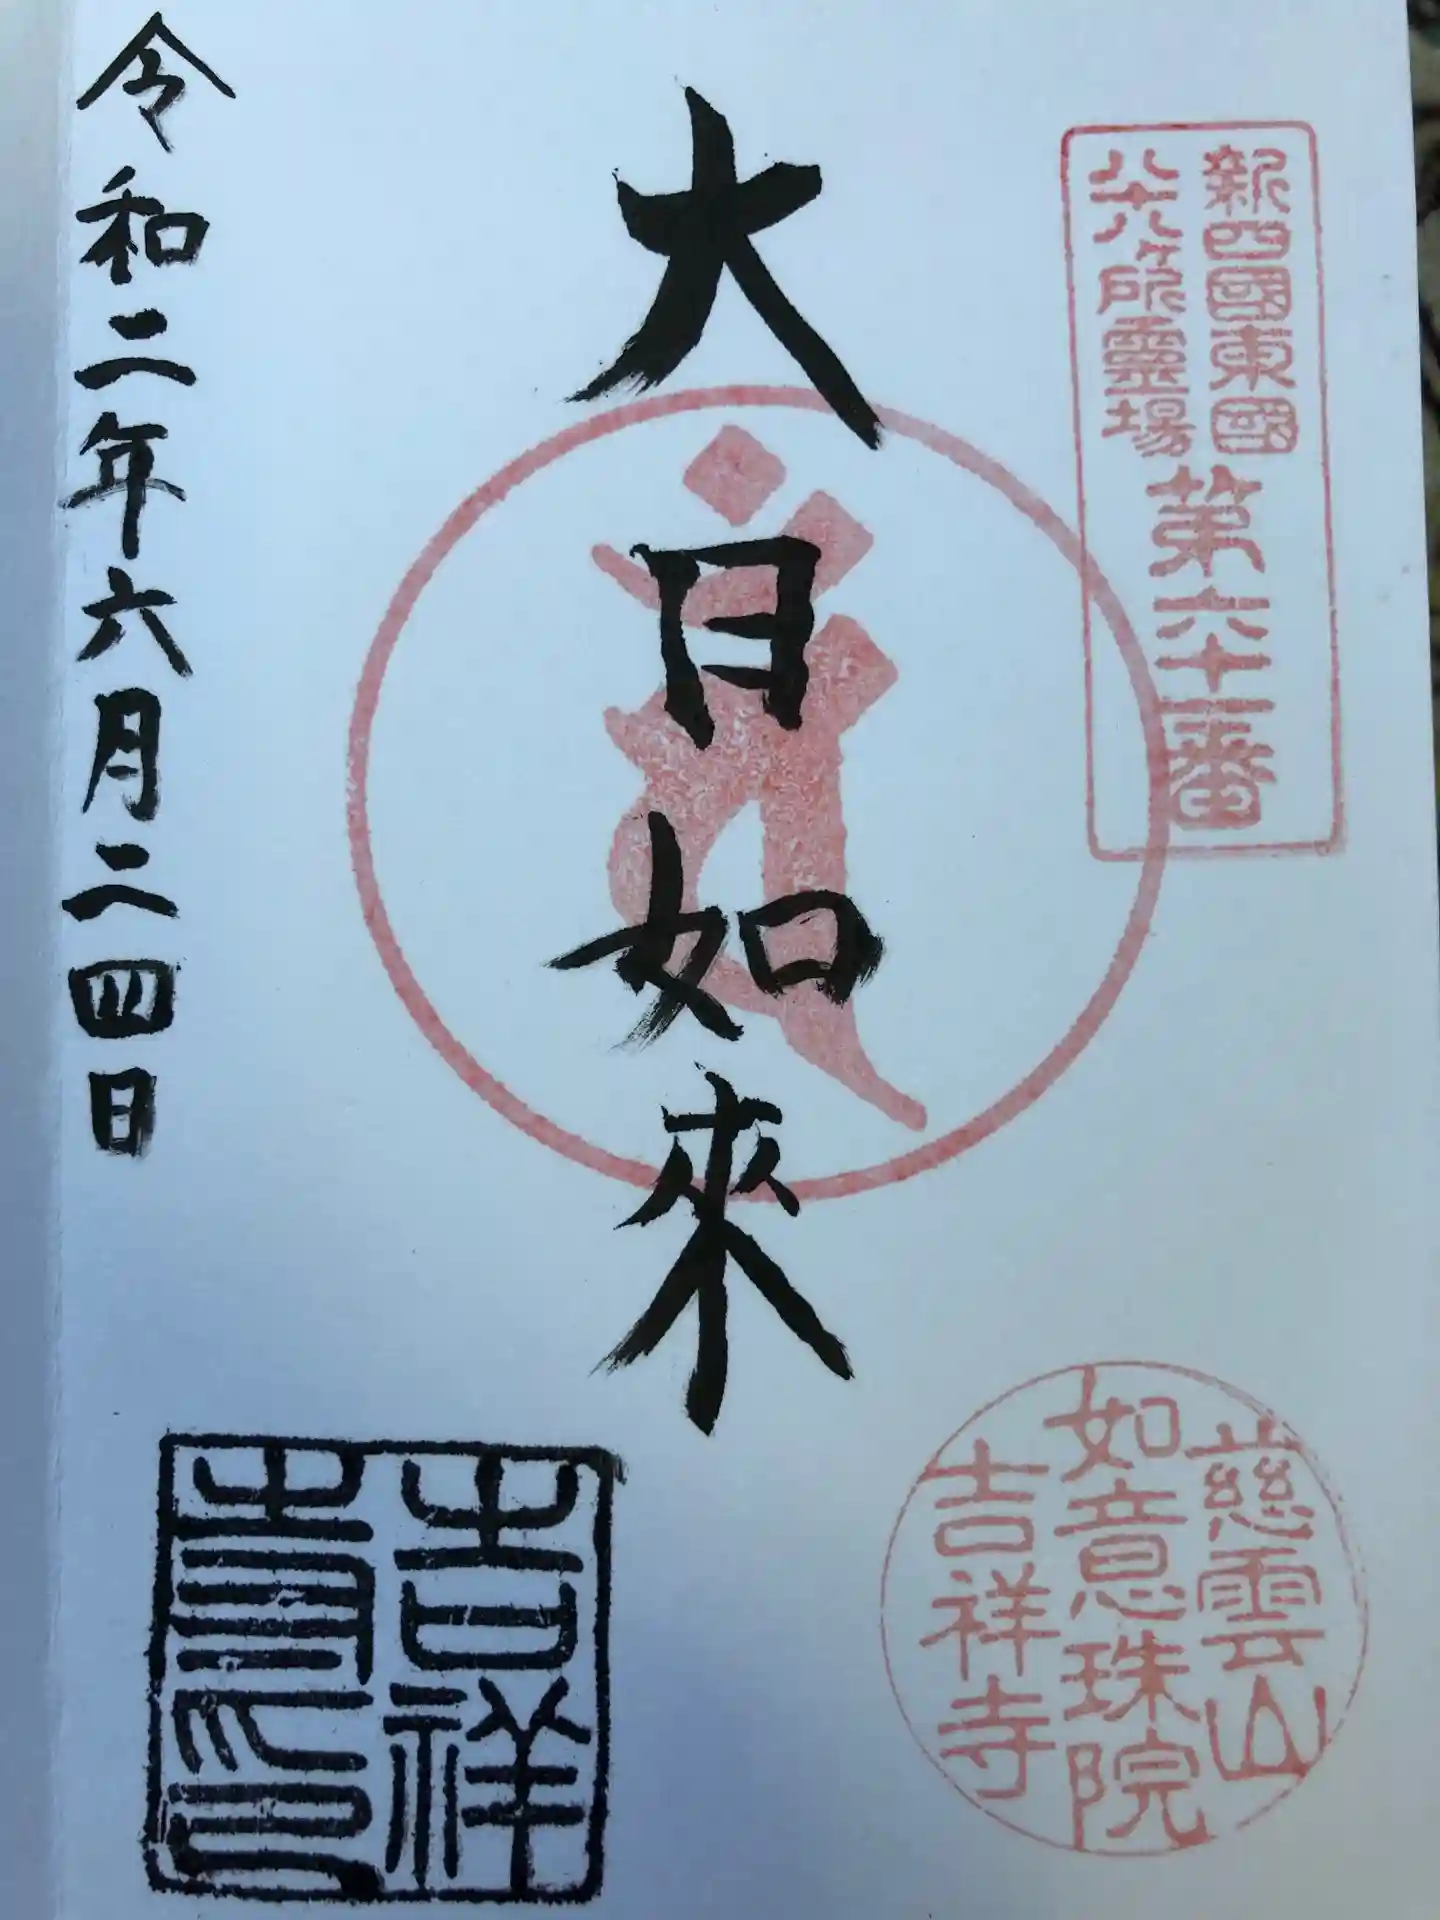 新四國東國
八十八ヶ所霊場
第六十二番
大日如来
慈雲山
如意珠院
吉祥寺
令和二年六月二四日
吉祥
寺印